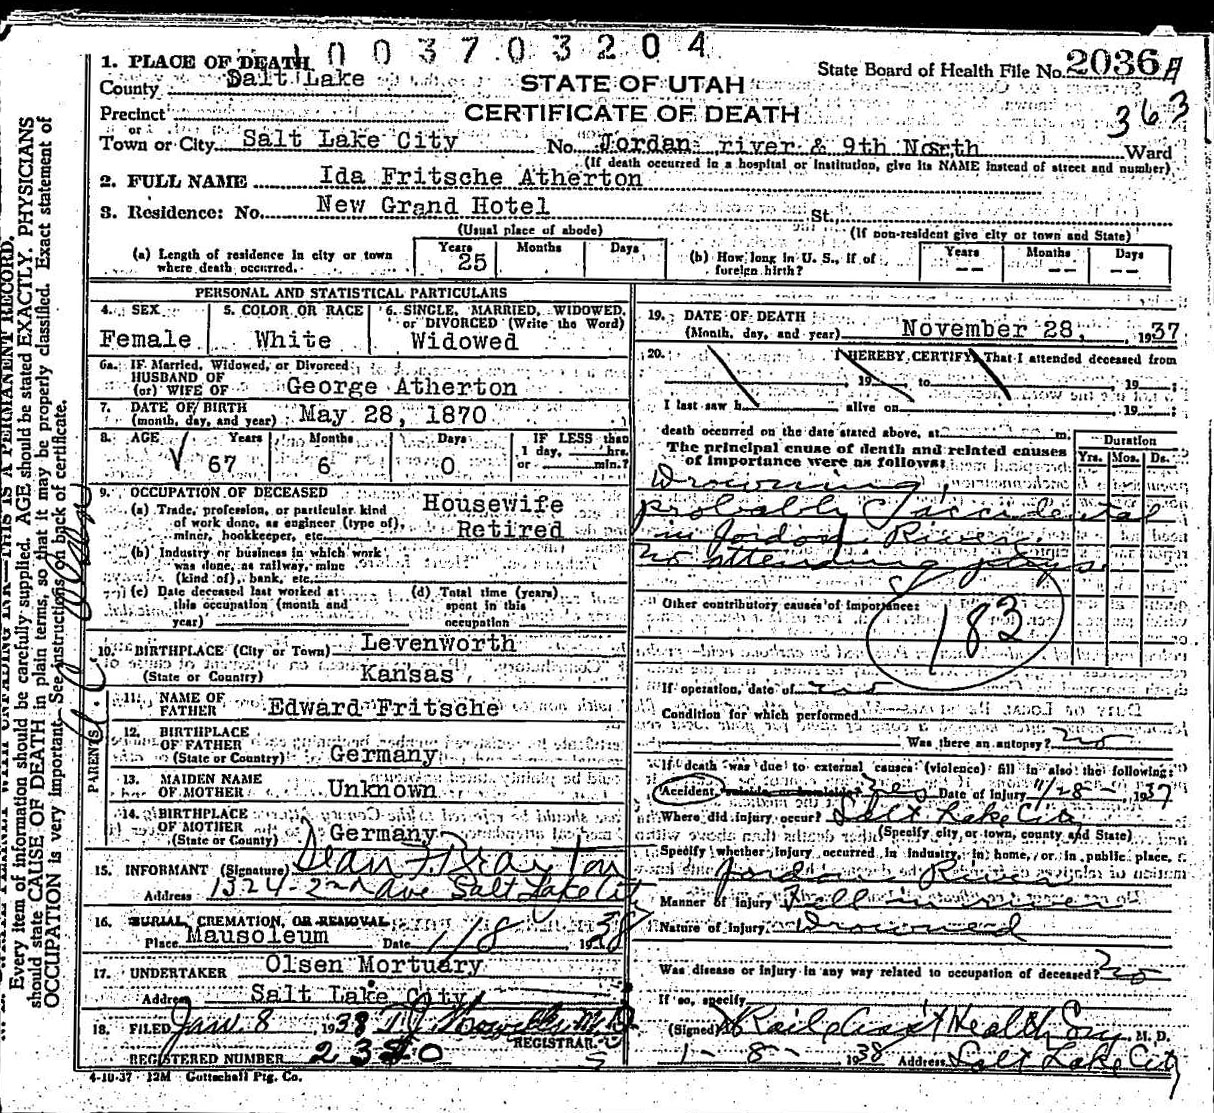 003703204
1. PLACE OF DEATH
County Salt Lake
STATE OF UTAH
CERTIFICATE OF DEATH
State Board of Health File No. 2036A
363
Precinct
or
Town or City Salt Lake City No. Jordan river & 9th North Ward
(If death occurred in a hospital or institution, give its NAME instead of street and number)
2. FULL NAME Ida Fritsche Atherton
3. Residence: No. New Grand Hotel St.
(Usual place of abode) (If non-resident give city or town and State)
(a) Length of residence in city or town where death occurred. Years 25 Months Days
(b) How long in U. S., if of foreign birth? Years -- Months -- Days --
PERSONAL AND STATISTICAL PARTICULARS
4. SEX Female
5. COLOR OR RACE White
6. SINGLE, MARRIED, WIDOWED, or DIVORCED (Write the Word) Widowed
6a. If Married, Widowed, or Divorced
HUSBAND OF
(or) WIFE OF George Atherton
7. DATE OF BIRTH
(month, day, and year) May 28, 1870
8. AGE Years 67 Months 6 Days 0 IF LESS than 1 day, hrs. or min.?
9. OCCUPATION OF DECEASED
(a) Trade, profession, or particular kind of work done, as engineer (type of), miner, bookkeeper, etc. Housewife Retired
(b) Industry or business in which work was done, as railway, mine (kind of), bank, etc.
(c) Date deceased last worked at this occupation (month and year)
(d) Total time (years) spent in this occupation
10. BIRTHPLACE (City or Town) Levenworth
(State or Country) Kansas
PARENTS
11. NAME OF FATHER Edward Fritsche
12. BIRTHPLACE OF FATHER
(State or Country) Germany
13. MAIDEN NAME OF MOTHER Unknown
14. BIRTHPLACE OF MOTHER
(State or Country) Germany
15. INFORMANT (Signature) Dean F. Brayton
Address 1324-2nd Ave Salt Lake City
16. BURIAL, CREMATION, OR REMOVAL
Place Mausoleum Date 1/8 1938
17. UNDERTAKER Olsen Mortuary
Address Salt Lake City
18. FILED Jan. 8 1938
REGISTRAR
REGISTERED NUMBER
4-10-37 12M Gottschall Ptg. Co.
19. DATE OF DEATH
(Month, day, and year) November 28, 1937
20. I HEREBY CERTIFY, That I attended deceased from
19 to 19
I last saw h alive on 19
death occurred on the date stated above, at m.
The principal cause of death and related causes of importance were as follows:
Duration
Yrs. Mos. Ds.
Drowning,
probably accidental
in Jordon River.
no attending phys
Other contributory causes of importance:
183
If operation, date of no
Condition for which performed
Was there an autopsy? no
If death was due to external causes (violence) fill in also the following:
Accident, suicide, homicide? Yes Date of injury 11/28 1937
Where did injury occur? Salt Lake City
(Specify city or town, county and State)
Specify whether injury occurred in industry, in home, or in public place,
Jordon River
Manner of injury Fell in river
Nature of injury Drowned
Was disease or injury in any way related to occupation of deceased? no
If so, specify
(Signed) M. D.
1-8- 1938 Address Salt Lake City
RECORD.
Every item of information should be carefully supplied. AGE should be stated EXACTLY. PHYSICIANS
should state CAUSE OF DEATH in plain terms, so that it may be properly classified. Exact statement of
OCCUPATION is very important. See instructions on back of certificate.